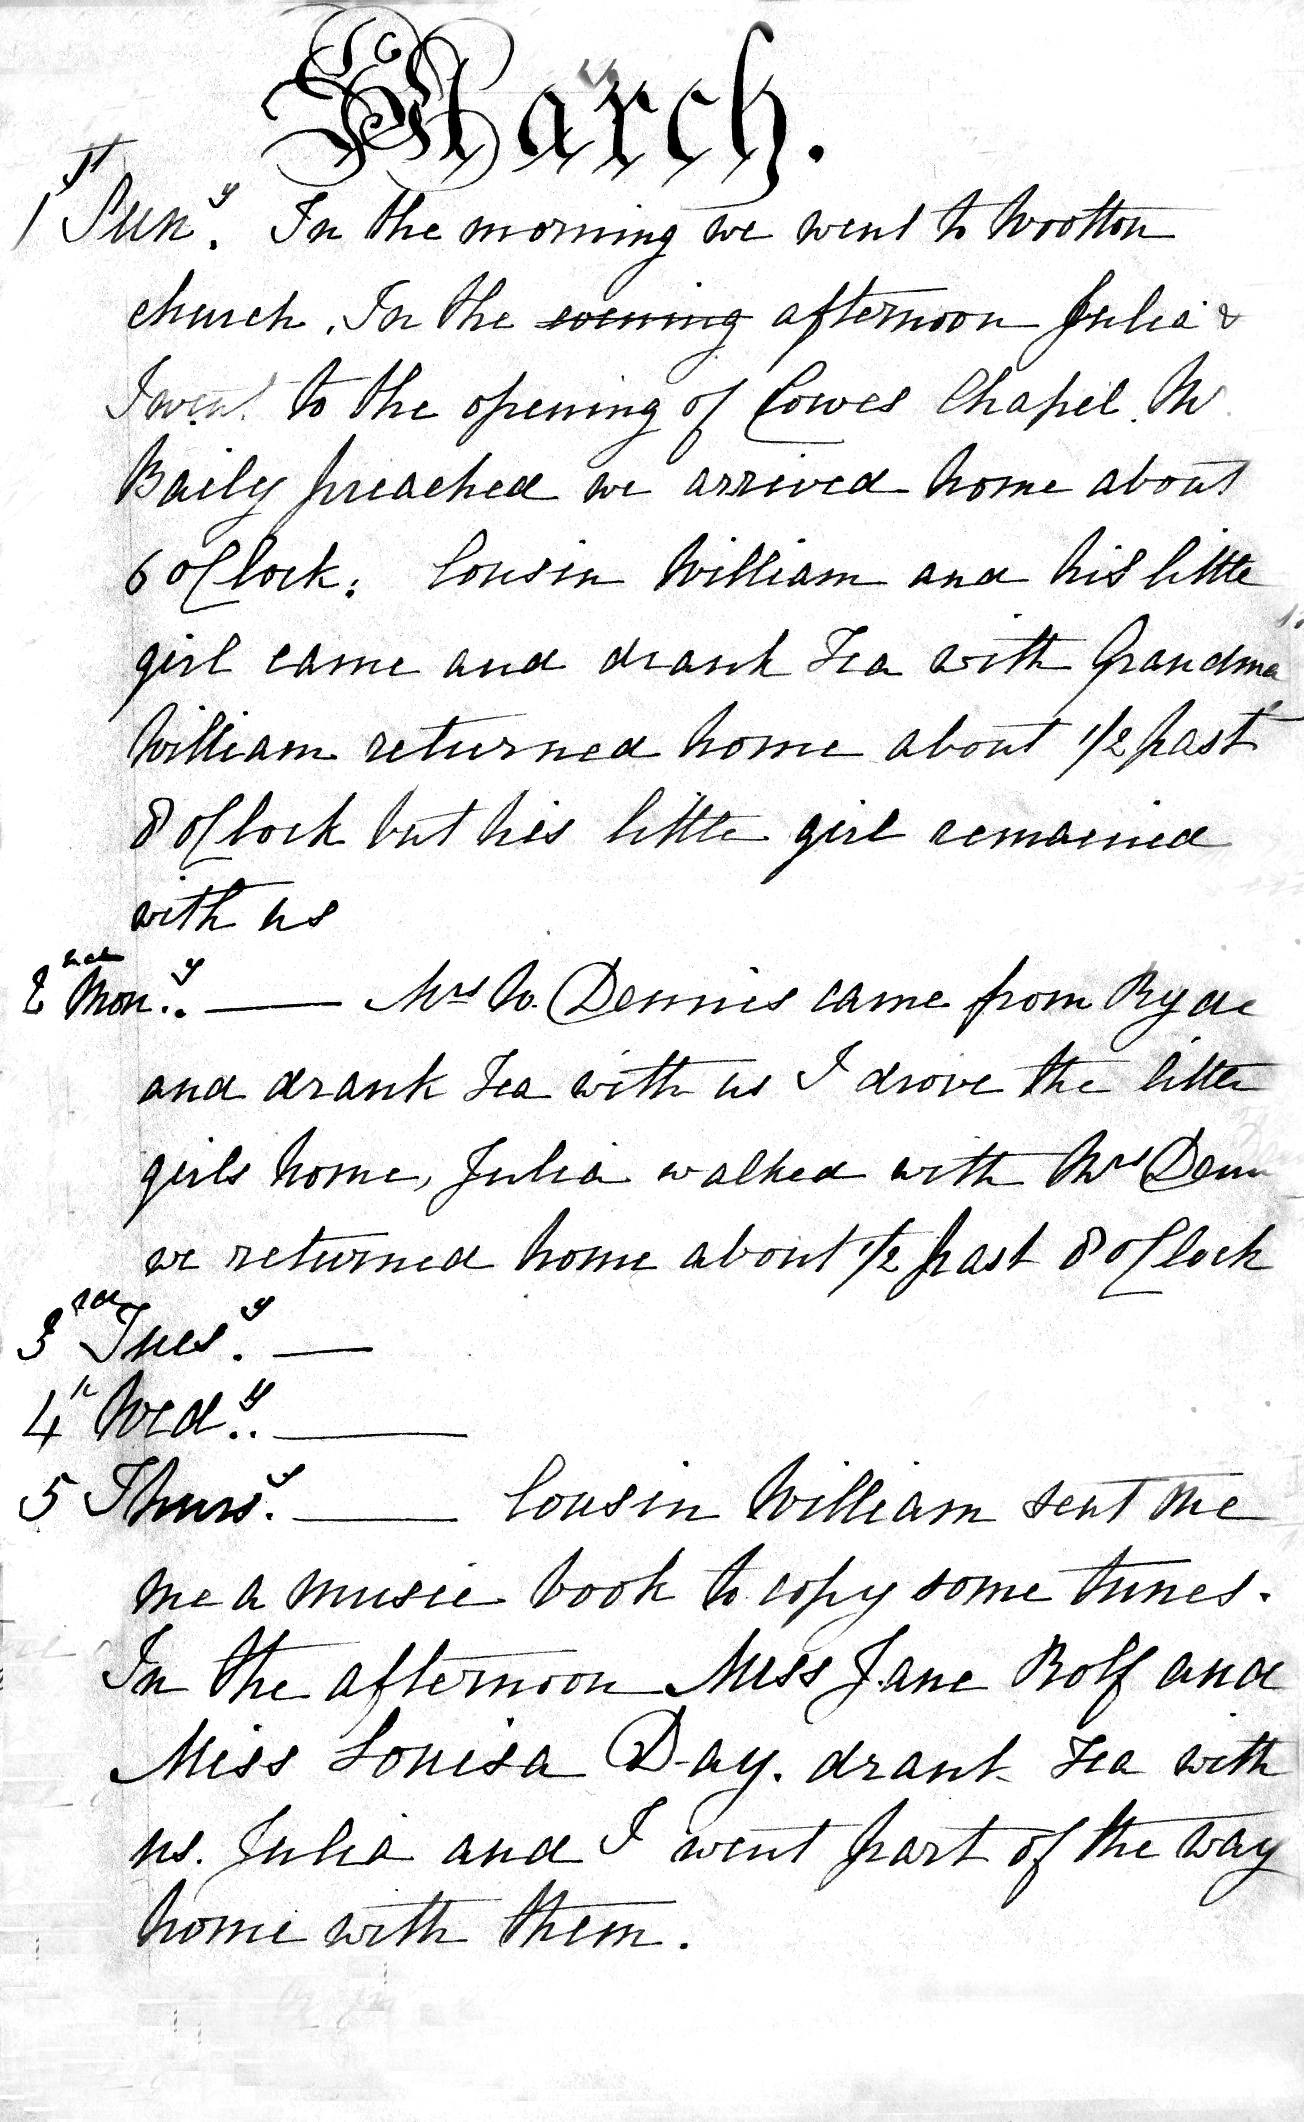 March.
1st Suny. In the morning we went to Wootton
church. In the evening afternoon Julia &
I went to the opening of Cowes Chapel. Mr
Baily preached we arrived home about
6 oClock: Cousin William and his little
girl came and drank Tea with Grandma
William returned home about 1/2 past
8 oClock but his little girl remained
with us
2nd Mony.. — Mrs W. Dennis came from Ryde
and drank Tea with us I drove the little
girls home, Julia walked with Mrs Denn
we returned home about 1/2 past 8 oClock
3rd Tuesy. —
4th Wedy.. —
5 Thursy. — Cousin William sent me
me a music book to copy some tunes.
In the afternoon Miss Jane Rolf and
Miss Louisa Day. drank Tea with
us. Julia and I went part of the way
home with them.